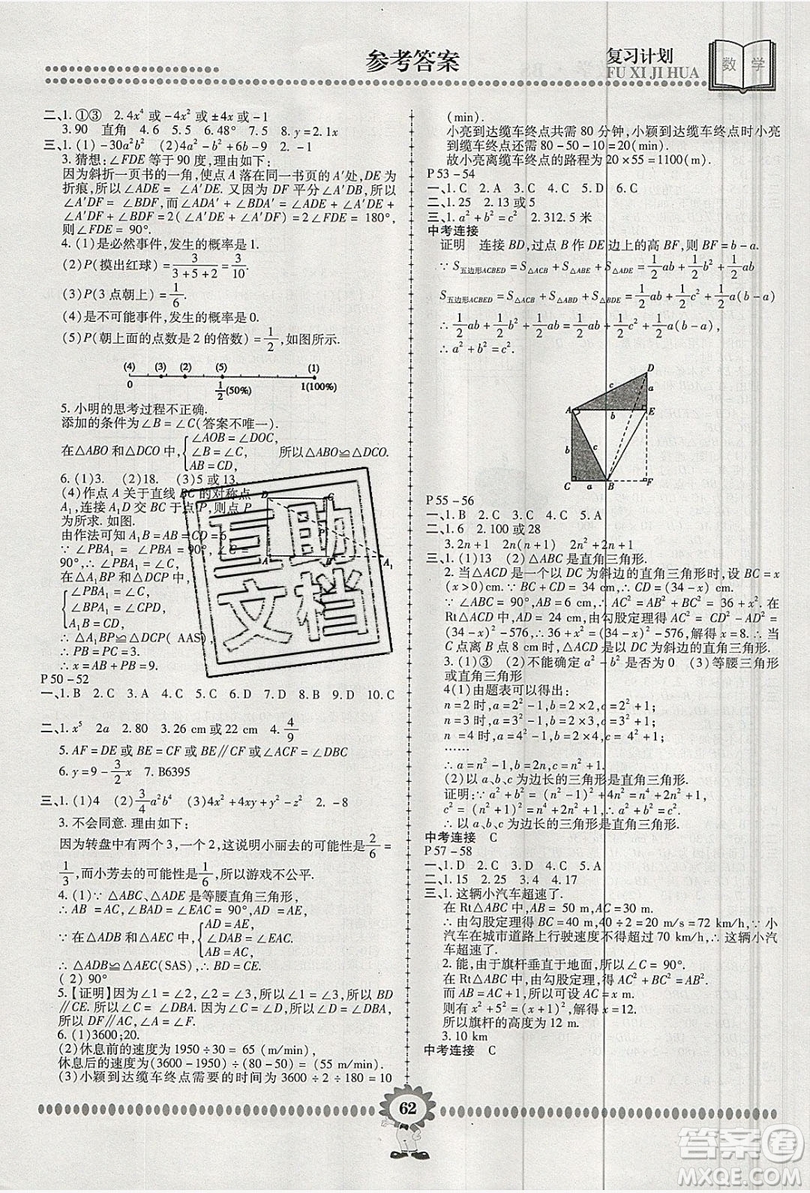 参考答案
复习计划
FU XI JI HUA
数学
二、1. ①③ 2. 4x⁴ 或 -4x² 或 ±4x 或 -1
3. 90 直角 4. 6 5. 5 6. 48° 7. 5 8. y = 2.1x
三、1. (1) -30a³b² (2) -a² - 6b - 9 2. -1
3. 猜想：∠FDE 等于 90 度，理由如下：
因为斜折一页书的一角，使点 A 落在同一书页的 A′处，DE 为
折痕，所以∠ADE = ∠A′DE. 又因为 DF 平分∠A′DB, 所以
∠A′DF = ∠BDF, 而∠ADA′ + ∠BDA′ = ∠ADE + ∠A′DE +
∠A′DF + ∠BDF = 2(∠A′DE + ∠A′DF) = 2∠FDE = 180°,
所以∠FDE = 90°.
4. (1) 是必然事件，发生的概率是 1.
(2)P(摸出红球) = 3/(3+5+2) = 3/10.
(3)P(3 点朝上) = 1/6.
(4)是不可能事件，发生的概率是 0.
(5)P(朝上面的点数是 2 的倍数) = 1/2, 如图所示.
(4) (3) (2) (5) (1)
0 1/2(50%) 1(100%)
5. 小明的思考过程不正确.
添加的条件为∠B = ∠C(答案不唯一).
在△ABO 和△DCO 中, {∠AOB = ∠DOC, ∠B = ∠C, AB = CD, 所以△ABO≌△DCO.
6. (1)3. (2)18. (3)5 或 13.
(4)作点 A 关于直线 BC 的对称点
A₁, 连接 A₁D 交 BC 于点 P, 则点 P
为所求. 如图.
由作法可知 A₁B = AB = CD = 6.
∵ ∠PBA₁ = ∠PBA = ∠C =
90°, ∴ ∠PBA₁ = ∠C = 90°.
在△A₁BP 和△DCP 中,
{∠PBA₁ = ∠C, ∠BPA₁ = ∠CPD, A₁B = CD,
∴ △A₁BP≌△DCP(AAS).
∴ PB = PC = 3.
∴ x = AB + PB = 9.
P50 - 52
一、1. B 2. C 3. A 4. B 5. C 6. C 7. D 8. D 9. D 10. C
二、1. x⁵ 2a 2. 80 3. 26 cm 或 22 cm 4. 4/9
5. AF = DE 或 BE = CF 或 BE∥CF 或∠ACF = ∠DBE
6. y = 9 - 3/2x 7. B6395
三、1. (1)4 (2)3/4a²b⁴ (3)4x⁴ + 4xy + y² 2. -1
3. 不会同意. 理由如下：
因为转盘中有两个 3, 一个 2, 这说明小丽去的可能性是 2/6 =
1/3, 而小芳去的可能性是 1/6, 所以游戏不公平.
4. (1) ∵ △ABC、△ADE 是等腰直角三角形,
∴ AB = AC, ∠BAD = ∠EAC = 90°, AD = AE,
∵ 在△ADB 和△AEC 中, {AD = AE, ∠BAD = ∠EAC, AB = AC,
∴ △ADB≌△AEC(SAS), ∴ BD = CE.
(2) 90°
5. 【证明】因为∠1 = ∠2, ∠2 = ∠3, 所以∠1 = ∠3, 所以 BD
∥CE. 所以∠C = ∠4. 因为∠C = ∠D, 所以∠D = ∠4.
所以 DF∥AC, 所以∠A = ∠F.
6. (1)3600;20.
(2)休息前的速度为 1950 ÷ 30 = 65 (m/min).
休息后的速度为(3600 - 1950) ÷ (80 - 50) = (55 m/min).
(3)小颖到达缆车终点需要的时间为 3600 ÷ 2 ÷ 180 = 10
(min).
小亮到达缆车终点共需 80 分钟, 小颖到达缆车终点时小亮
到缆车终点还需 80 - 50 - 10 = 20(min).
故小亮离缆车终点的路程为 20 × 55 = 1100(m).
P53 - 54
一、1. C 2. B 3. A 4. C 5. D 6. C
二、1. 25 2. 13 或 5
三、1. a² + b² = c² 2. 312.5 米
中考连接
证明 连接 BD, 过点 B 作 DE 边上的高 BF, 则 BF = b - a.
∵ S五边形ACBED = S△ACB + S△ABE + S△ADE = 1/2ab + 1/2b² + 1/2ab,
S五边形ACBED = S△ACB + S△ABD + S△BDE = 1/2ab + 1/2c² + 1/2a(b - a)
∴ 1/2ab + 1/2b² + 1/2ab = 1/2ab + 1/2c² + 1/2a(b - a),
∴ a² + b² = c².
D
c a
A b E
b c
C a B F
P55 - 56
一、1. B 2. C 3. C 4. C 5. A
二、1. 6 2. 100 或 28
3. 2n + 1 2n(n + 1) 2n² + 2n + 1
三、1. (1)13 (2)是直角三角形
2. 当△ACD 是以 DC 为斜边的直角三角形时, 设 BC = x
(x > 0)cm, 则 CD = (34 - x) cm.
∵ ∠ABC = 90°, AB = 6 cm, ∴ AC² = AB² + BC² = 36 + x². 在
Rt△ACD 中, AD = 24 cm, 由勾股定理得 AC² = CD² - AD² =
(34 - x)² - 24², ∴ 36 + x² = (34 - x)² - 24², 解得 x = 8, ∴ 当
C 点离 B 点 8 cm 时, △ACD 是以 DC 为斜边的直角三角形.
3. (1)③ (2)不能确定 a² - b² 是否为 0 (3)等腰三角形
或直角三角形
4(1)由题表可以得出：
n = 2 时, a = 2² - 1, b = 2×2, c = 2² + 1;
n = 3 时, a = 3² - 1, b = 2×3, c = 3² + 1;
n = 4 时, a = 4² - 1, b = 2×4, c = 4² + 1;
……
∴ a = n² - 1, b = 2n, c = n² + 1.
(2)以 a、b、c 为边长的三角形是直角三角形.
证明：∵ a² + b² = (n² - 1)² + 4n² = n⁴ + 2n² + 1,
c² = (n² + 1)² = n⁴ + 2n² + 1, ∴ a² + b² = c²,
∴ 以 a、b、c 为边长的三角形是直角三角形.
中考连接 C
P57 - 58
一、1. D 2. C 3. D 4. B
二、1. 15 2. 25 3. 4 4. 17
三、1. 这辆小汽车超速了.
在 Rt△ABC 中, AB = 50 m, AC = 30 m.
∴ 由勾股定理得 BC = 40 m, 40 ÷ 2 = 20 m/s = 72 km/h, ∵ 小
汽车在城市道路上行驶速度不得超过 70 km/h, ∴ 这辆小汽
车超速了.
2. 能, 由于旗杆垂直于地面, 所以∠C = 90°,
在 Rt△ABC 中, 由勾股定理得 AC² + BC² = AB²,
所以 x² + 5² = (x + 1)², 所以 x = 12.
所以旗杆的高度为 12 m.
3. 10 km
中考连接 C
62
互助文档
答案圈
MXQE.COM